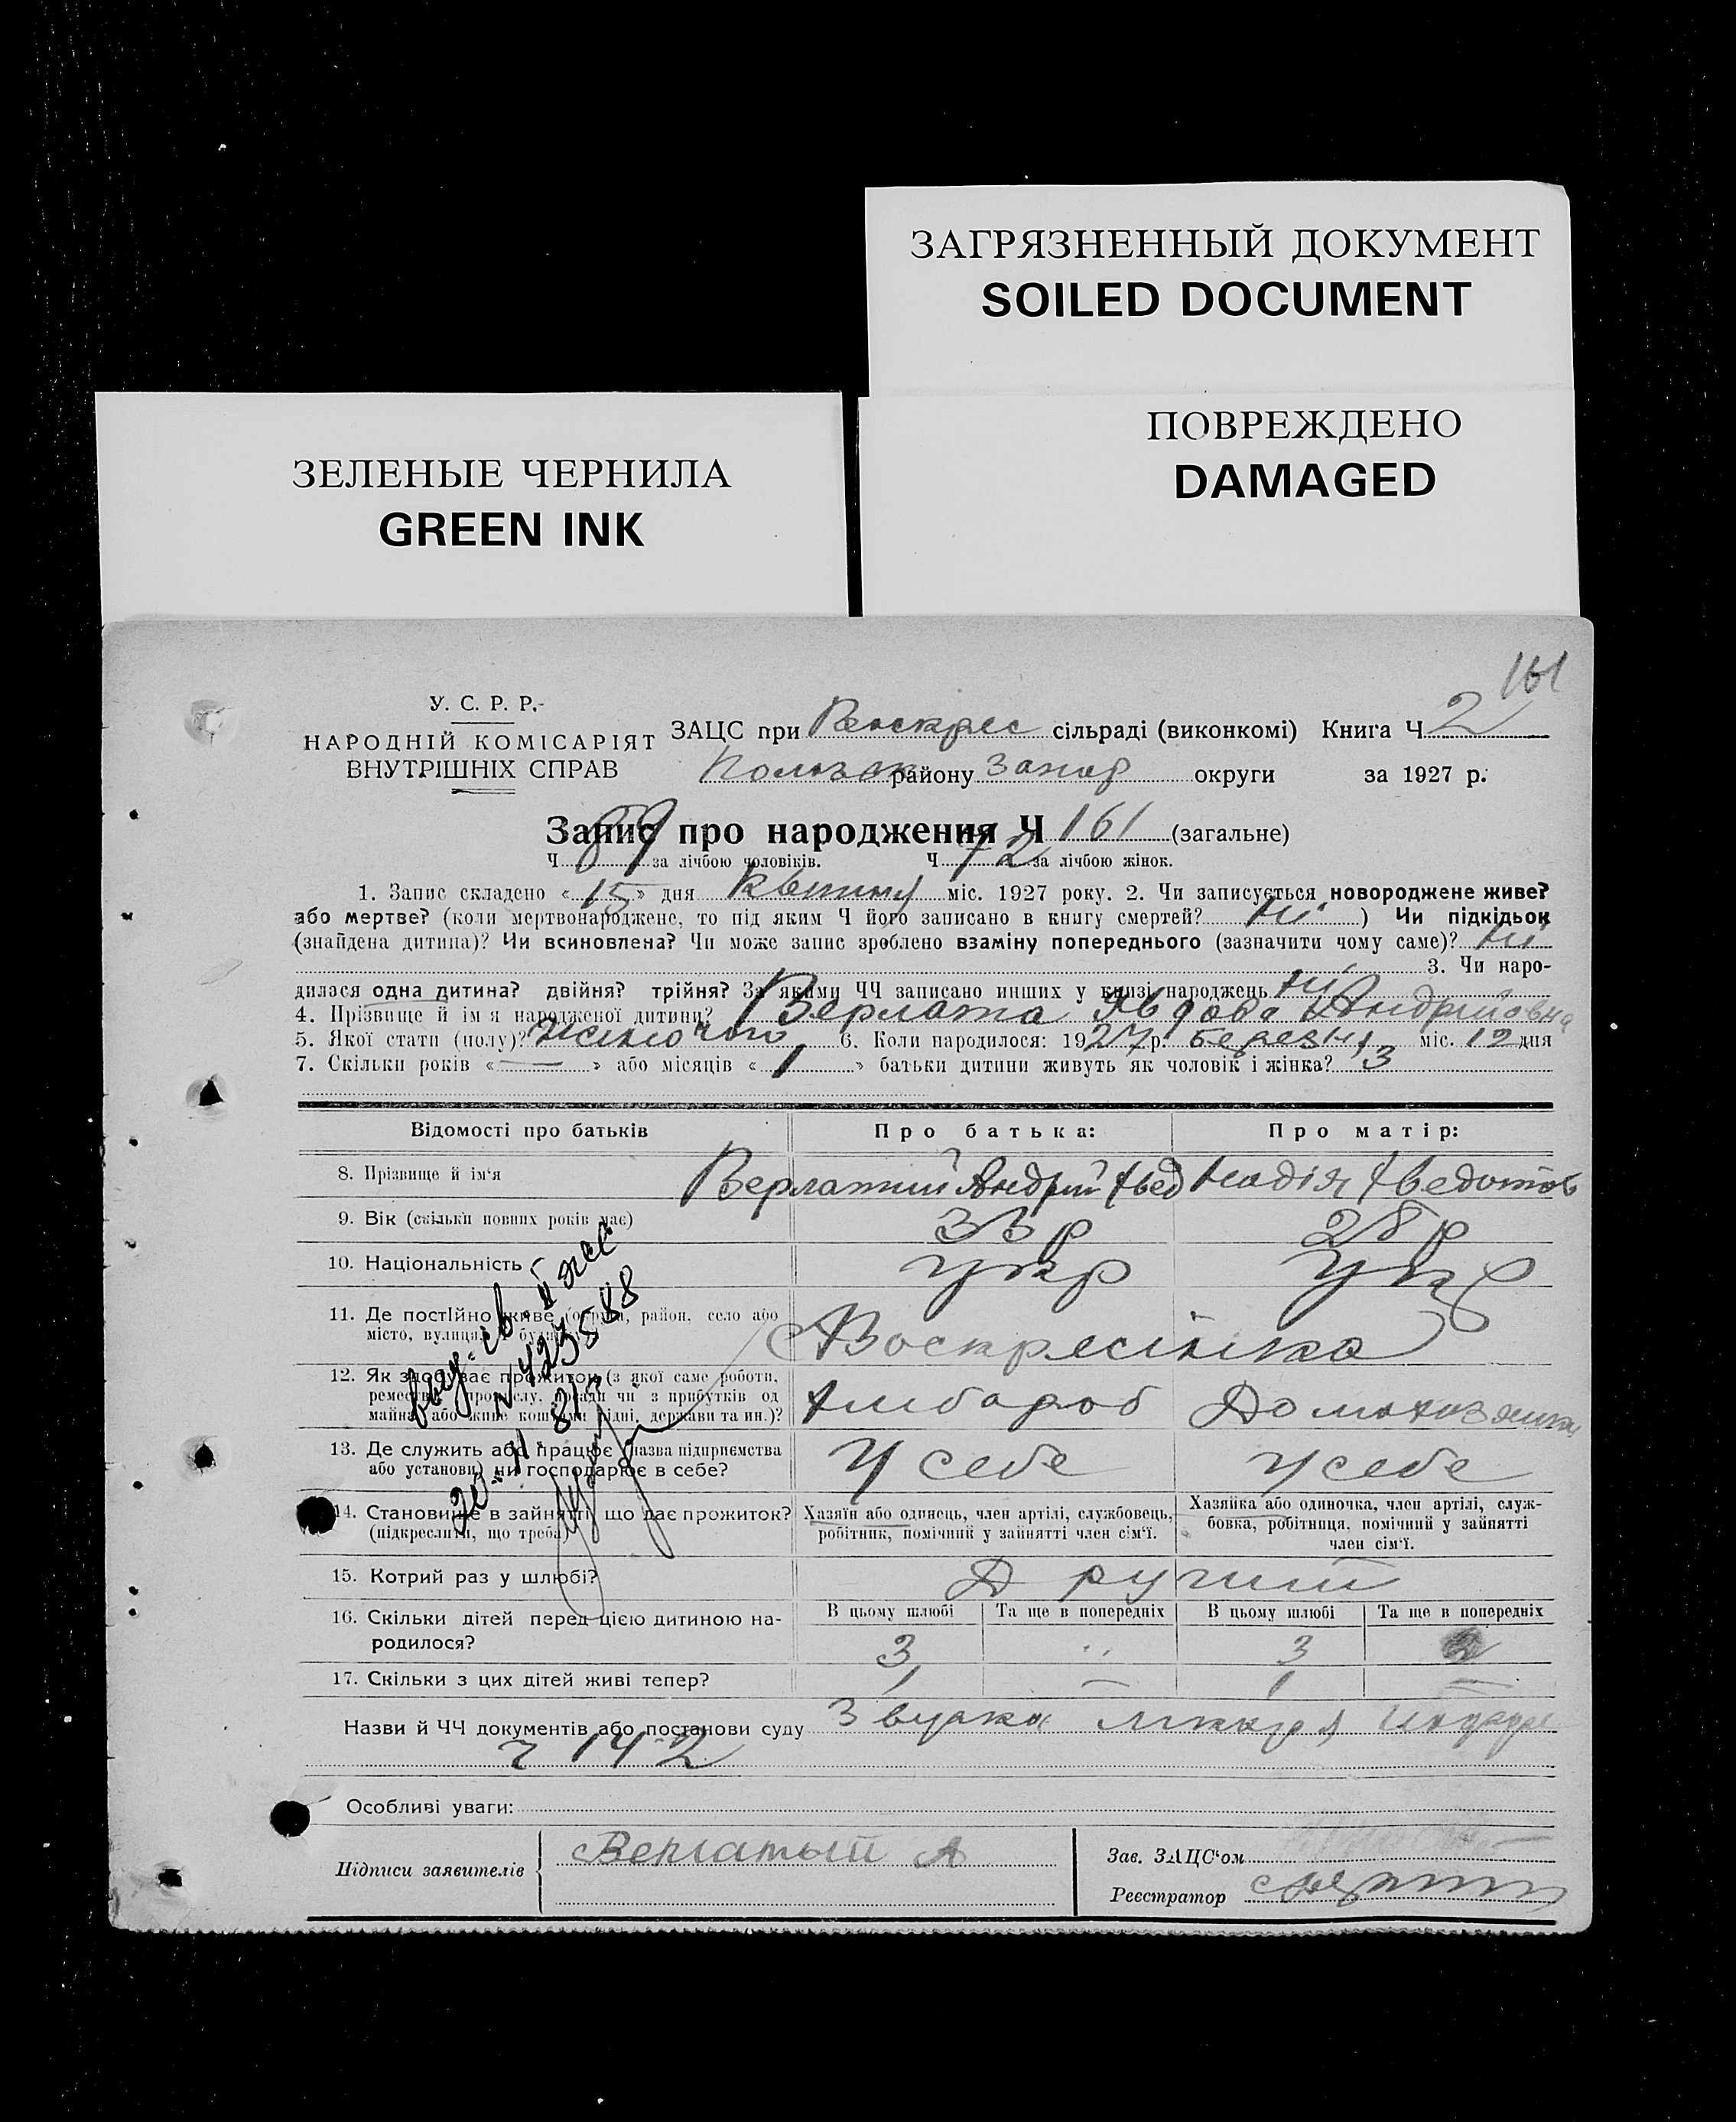 ЗАГРЯЗНЕННЫЙ ДОКУМЕНТ
SOILED DOCUMENT
ПОВРЕЖДЕНО
DAMAGED
ЗЕЛЕНЫЕ ЧЕРНИЛА
GREEN INK
161
У. С. Р. Р.
НАРОДНІЙ КОМІСАРІЯТ
ВНУТРІШНІХ СПРАВ
ЗАЦС при Воскрес сільраді (виконкомі) Книга Ч 2
району Запор округи за 1927 р.
Запис про народження Ч 161 (загальне)
Ч 89 за лічбою чоловіків. Ч 72 за лічбою жінок.
1. Запис складено «15» дня квітня міс. 1927 року. 2. Чи записується новороджене живе?
або мертве? (коли мертвонароджене, то під яким Ч його записано в книгу смертей? Ні) Чи підкідьок
(знайдена дитина)? Чи всиновлена? Чи може запис зроблено взаміну попереднього (зазначити чому саме)? Ні
3. Чи наро-
дилася одна дитина? двійня? трійня? За якими ЧЧ записано инших у книзі народжень Ні
4. Прізвище й ім'я народженої дитини? Верлата Явдоха Андрійовна
5. Якої стати (полу)? Жіночого 6. Коли народилося: 1927 р. Березня міс. 12 дня
7. Скільки років « — » або місяців « 1 » батьки дитини живуть як чоловік і жінка? 13
Відомості про батьків Про батька: Про матір:
8. Прізвище й ім'я Верлатий Андрій Хвед Надія Хведотов
9. Вік (скільки повних років має) 33 р 28 р
10. Національність укр укр
11. Де постійно живе (округа, район, село або
місто, вулиця, Воскресінка
12. Як здобуває прожиток (з якої саме роботи,
ремества, промислу, посади чи з прибутків од
майна або живе коштами рідні, держави та ин.)? Хлібороб Домохозяйка
13. Де служить або працює (назва підприємства
або установи) чи господарює в себе? У себе У себе
14. Становище в зайнятті, що дає прожиток?
(підкреслити, що треба)
Хазяїн або одинець, член артілі, службовець,
робітник, помічний у зайнятті член сім'ї.
Хазяйка або одиночка, член артілі, служ-
бовка, робітниця, помічний у зайнятті
член сім'ї.
15. Котрий раз у шлюбі? Другий
16. Скільки дітей перед цією дитиною на-
родилося?
В цьому шлюбі Та ще в попередніх В цьому шлюбі Та ще в попередніх
3 3
17. Скільки з цих дітей живі тепер? 1 — 1 —
Назви й ЧЧ документів або постанови суду
ч 142
Особливі уваги:
Підписи заявителів Верлатый А
Зав. ЗАЦС'ом
Реєстратор
N 423588